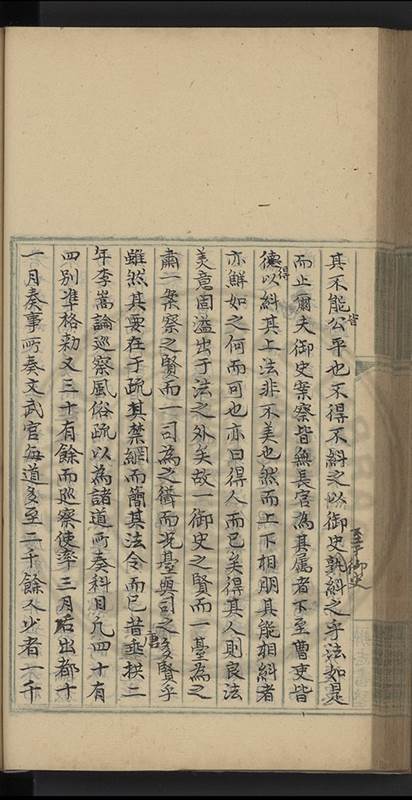 其不能皆公平也不得不糾之以御史至于御史孰糾之乎法如是
而止爾夫御史案察皆無長官為其屬者下至曹吏皆
得以糾其上法非不美也然而上下相朋其能相糾者
亦鮮如之何而可也亦曰得人而已矣得其人則良法
美意固溢出于法之外矣故一御史之賢而一臺為之
肅一案察之賢而一司為之清而况臺與司之多賢乎
雖然其要在于疏其禁網而簡其法令而已昔唐垂拱二
年李嵩論巡察風俗疏以為諸道所奏科目凡四十有
四別准格勑又三十有餘而巡察使率三月後出都十
一月奏事所奏文武官每道多至二千餘人少者一千